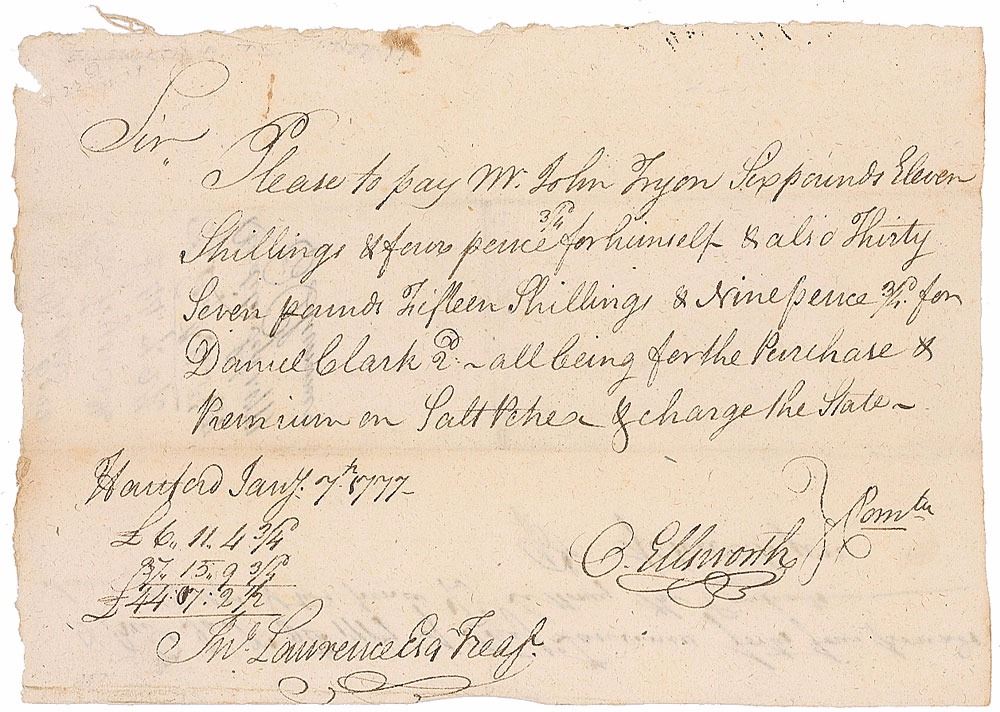 Sir
Please to pay Mr. John Tryon Six pounds Eleven
Shillings & four pence 3/4d for himself & also Thirty
Seven pounds Fifteen Shillings & Nine pence 3/4d. for
Daniel Clark 2d. ~ all being for the Purchase &
Premium on Salt Petre & charge the State ~
Hartford Jany. 7th. 1777
£ 6,, 11. 4 3/4d
37,, 15,, 9 3/4d
£ 44: 07: 2 1/2
O. Ellsworth } Comtee
Jno. Lawrence Esq Treasr.